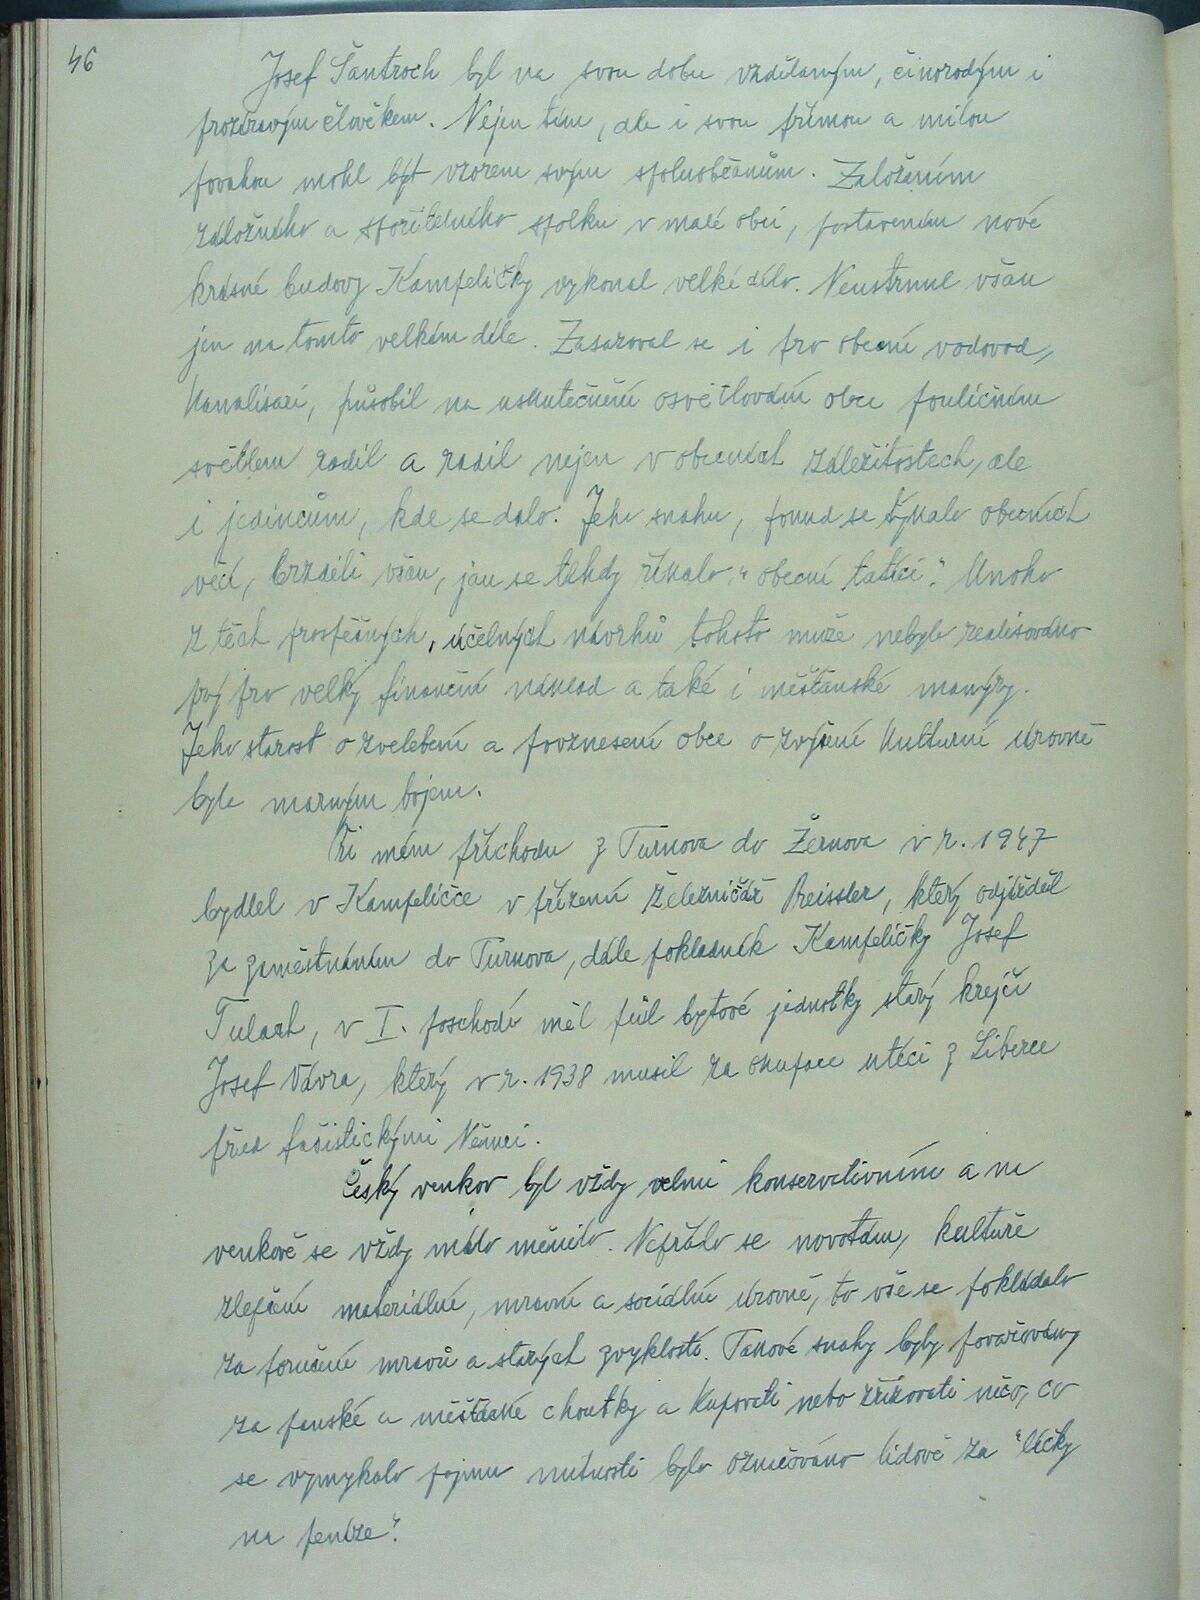 46
Josef Šantroch byl na svou dobu vzdělaným, činorodým i
prozíravým člověkem. Nejen tím, ale i svou přímou a milou
povahou mohl být vzorem svým spoluobčanům. Založením
záložního a spořitelního spolku v malé obci, postavením nové
krásné budovy Kampeličky vykonal velké dílo. Neustrnul však
jen na tomto velkém díle. Zasazoval se i pro obecní vodovod,
kanalisaci, působil na uskutečnění osvětlování obce pouličním
světlem radil a radil nejen v obecních záležitostech, ale
i jedincům, kde se dalo. Jeho snahu, pokud se týkalo obecních
věcí, brzdili však, jak se tehdy říkalo "obecní tatíci". Mnoho
z těch prospěšných, účelných návrhů tohoto muže nebylo realisováno
prý pro velký finanční náklad a také i měšťanské manýry.
Jeho starost o zvelebení a povznesení obce o zvýšení kulturní úrovně
byla marným bojem.
Při mém příchodu z Turnova do Žernova v r. 1947
bydlel v Kampeličce v přízemí železničář Preissler, který odjížděl
za zaměstnáním do Turnova, dále pokladník Kampeličky Josef
Tulach, v I. poschodí měl půl bytové jednotky starý krejčí
Josef Vávra, který v r. 1938 musil za okupace utéci z Liberce
před fašistickými Němci.
Český venkov byl vždy velmi konservativním a na
venkově se vždy málo měnilo. Nepřálo se novotám, kultuře
zlepšení materiální, mravní a sociální úrovně, to vše se pokládalo
za porušení mravů a starých zvyklostí. Takové snahy byly považovány
za panské a měšťácké choutky a kupovati nebo zřizovati něco, co
se vymykalo pojmu nutnosti bylo označováno lidově za "léčky
na peníze".